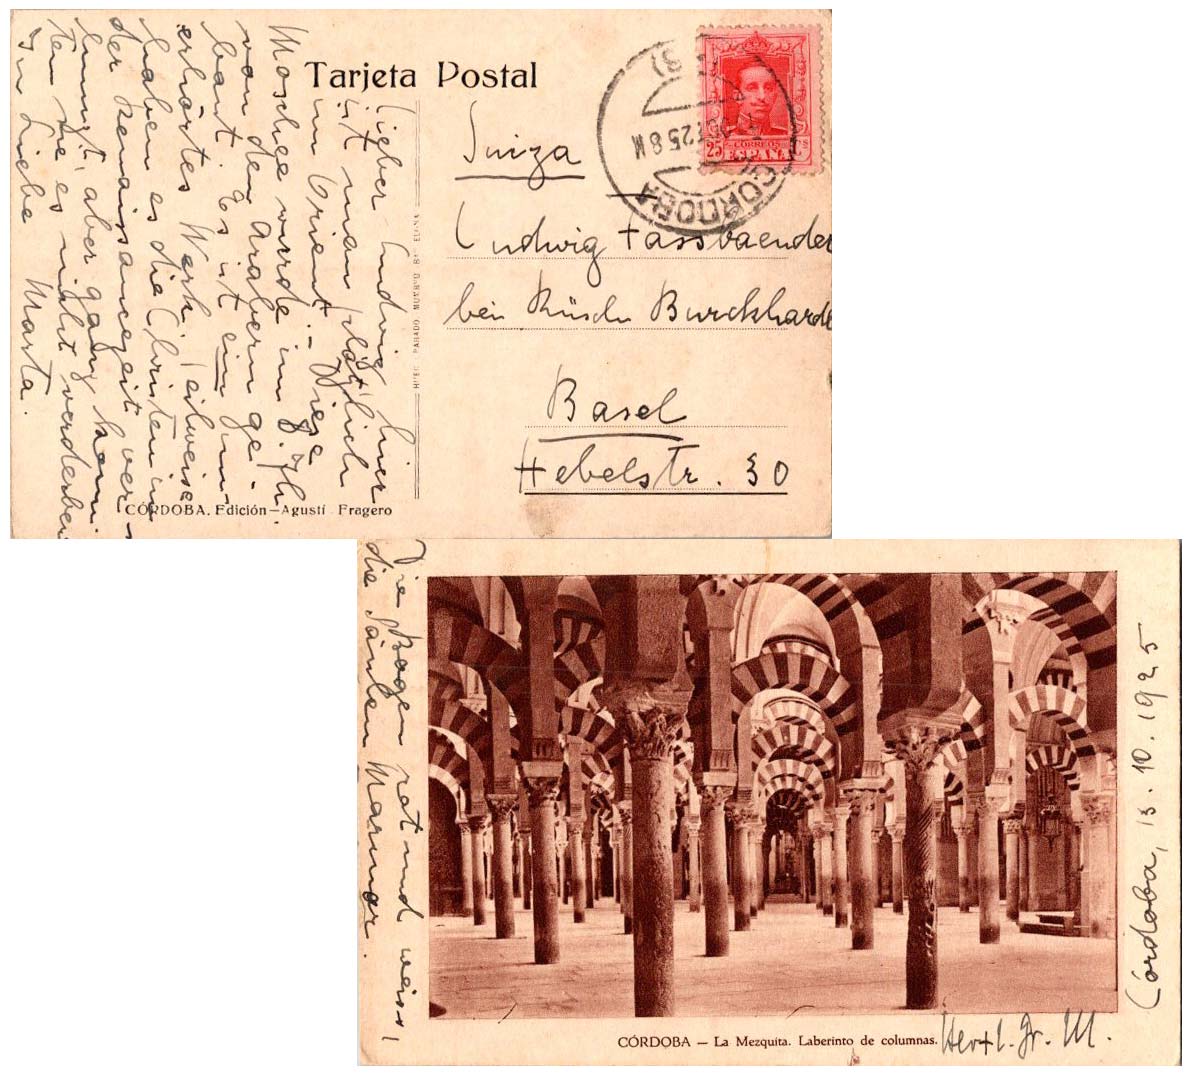 Tarjeta Postal
25 CORREOS
ESPAÑA
CÓRDOBA
Suiza
Ludwig Fassbaender
bei Rüsch Burckhardt
Basel
Hebelstr. 30
Lieber Ludwig, hier
ist man plötzlich
im Orient. – Diese
Moschee wurde im 8. Jh.
von den Arabern ge-
baut. Es ist ein un-
erhörtes Werk. Teilweise
haben es die Christen in
der Renaissancezeit ver-
hunzt, aber ganz konn-
ten sie es nicht verderben
In Liebe Marta.
CÓRDOBA. Edición—Agustí Fragero
Die Bogen rot und weiss,
die Säulen Marmor.
Cordoba, 13. 10. 1925
CÓRDOBA — La Mezquita. Laberinto de columnas.
Herzl. Gr. M.